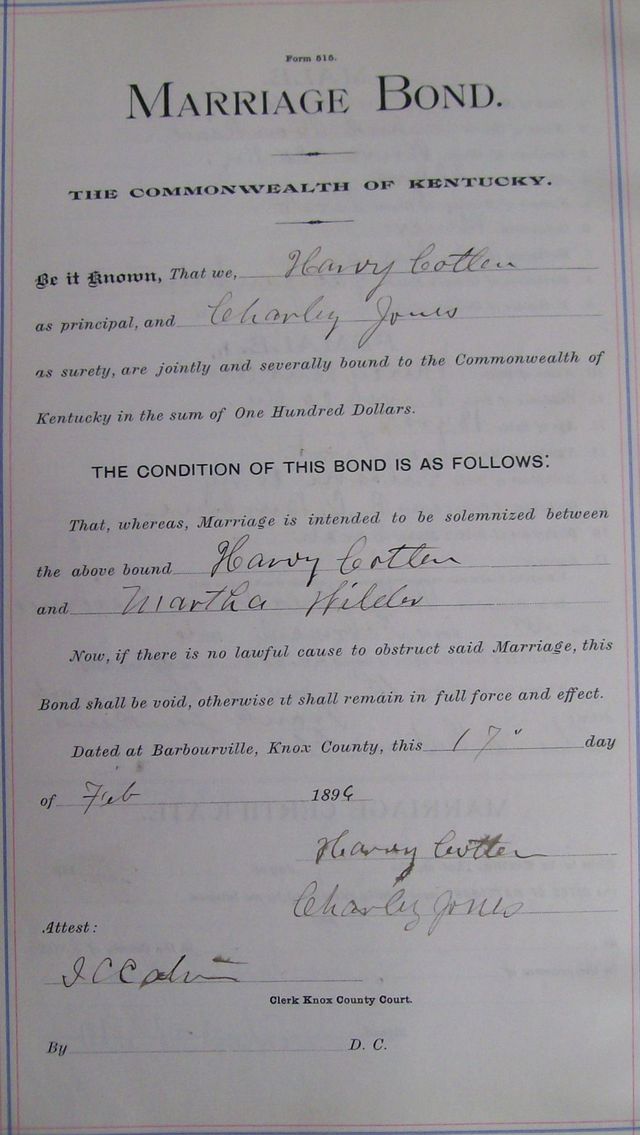 Form 515.
MARRIAGE BOND.
THE COMMONWEALTH OF KENTUCKY.
Be it Known, That we, Harvy Cotten
as principal, and Charley Jones
as surety, are jointly and severally bound to the Commonwealth of
Kentucky in the sum of One Hundred Dollars.
THE CONDITION OF THIS BOND IS AS FOLLOWS:
That, whereas, Marriage is intended to be solemnized between
the above bound Harvy Cotten
and Martha Wilder
Now, if there is no lawful cause to obstruct said Marriage, this
Bond shall be void, otherwise it shall remain in full force and effect.
Dated at Barbourville, Knox County, this 17" day
of Feb 1896
Harvy Cotten
Charley Jones
Attest:
Clerk Knox County Court.
By D. C.